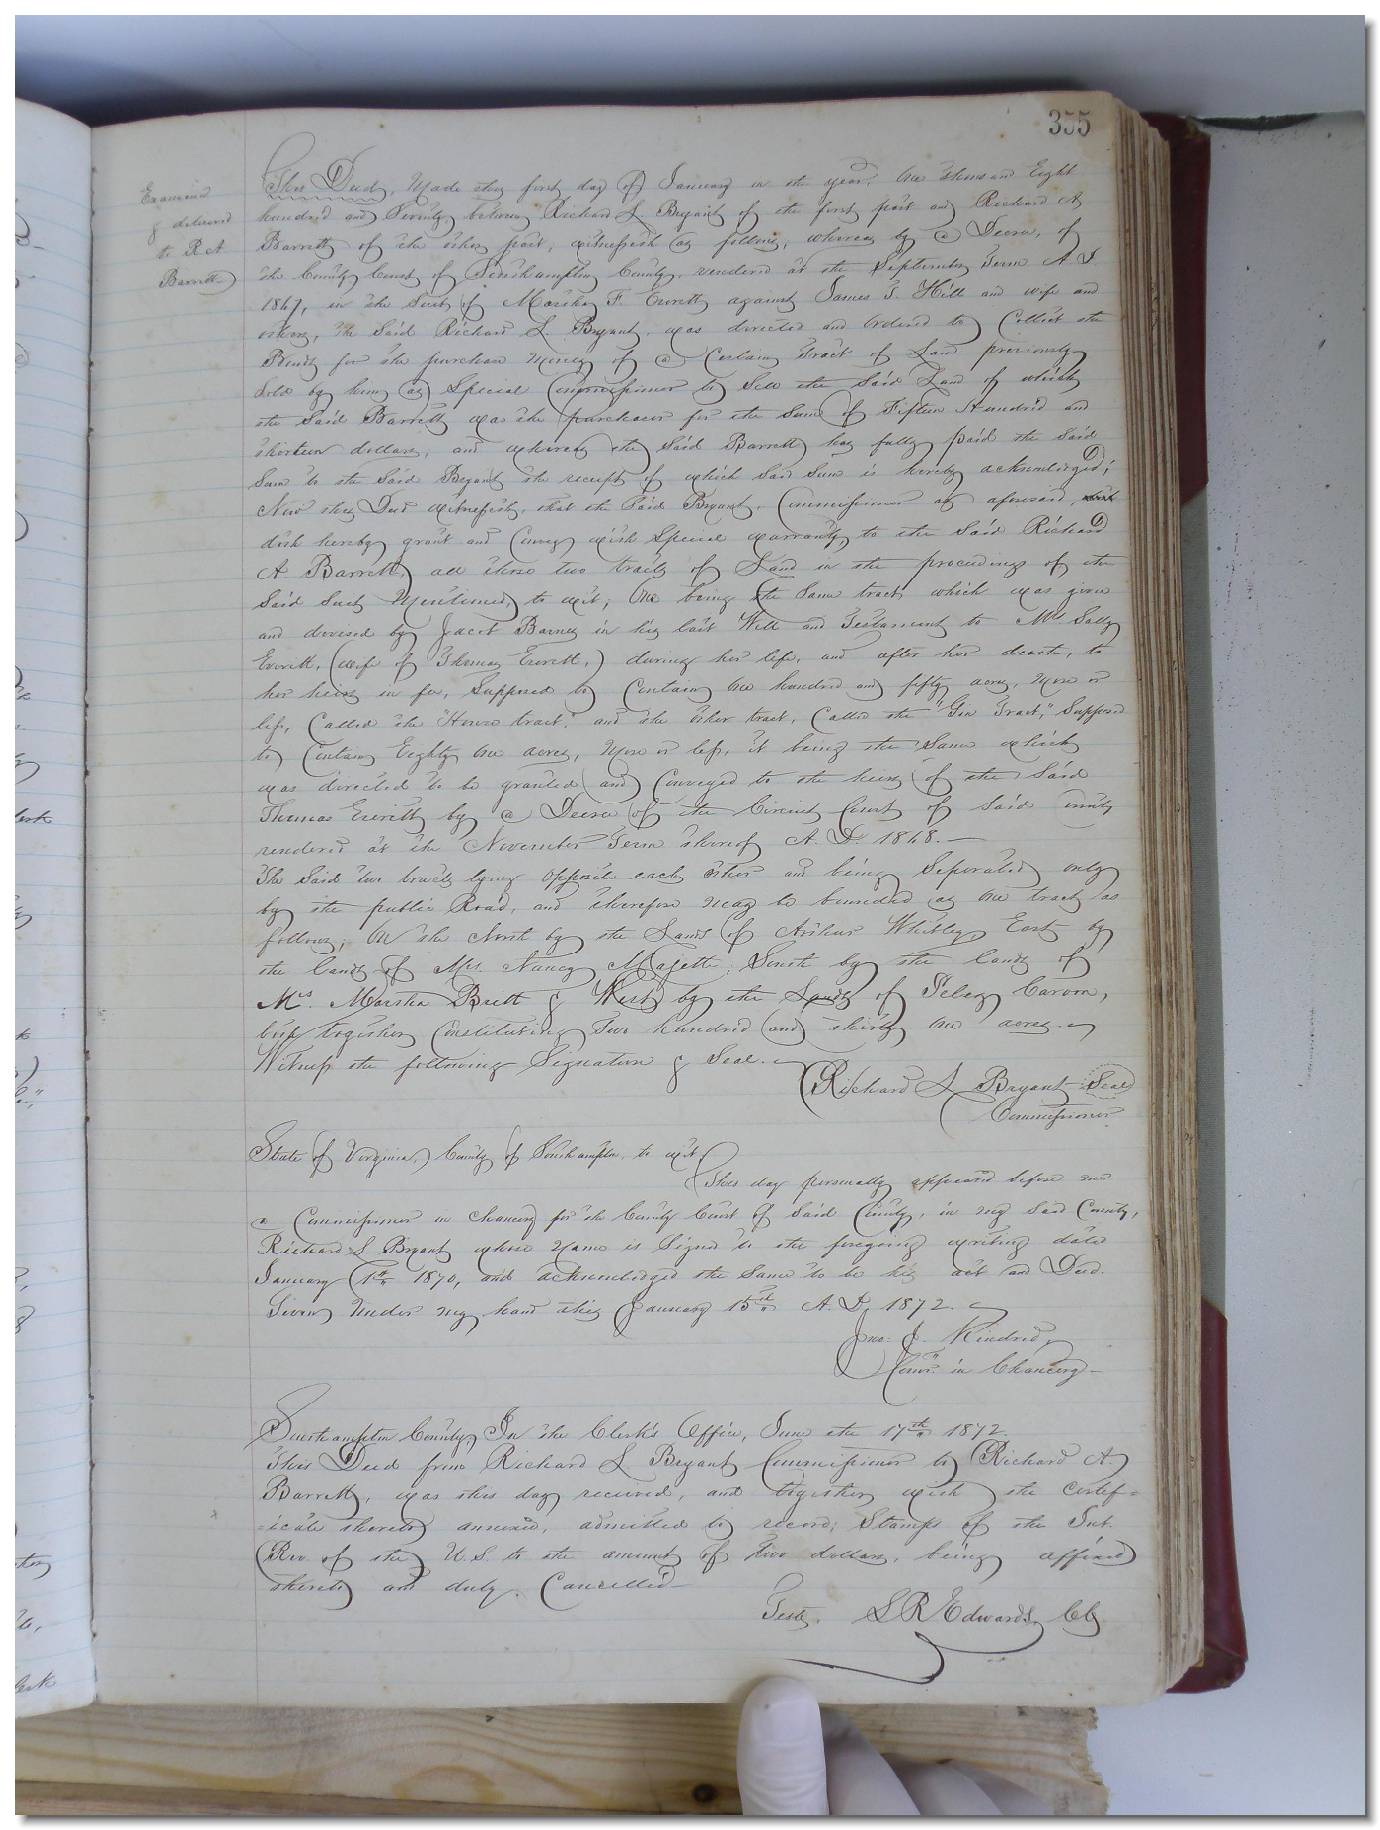 355
Examined
& delivered
to R A
Barrett
This Deed, Made this first day of January in the year, One thousand Eight
hundred and Seventy, between Richard L. Bryant of the first part and Richard A
Barrett of the other part, witnesseth as follows, whereas by a Decree, of
the County Court of Southampton County, rendered at the September Term A. D
1867, in the Suit of Martha F. Everett against James T. Hill and wife and
others, the Said Richard L. Bryant, was directed and Ordered to Collect the
Bonds for the purchase money of a Certain Tract of Land previously
Sold by him as Special Commissioner to Sell the Said Land of which
the Said Barrett was the purchaser for the Sum of Fifteen Hundred and
thirteen dollars, and whereas the Said Barrett has fully paid the Said
Sum to the Said Bryant the receipt of which Said Sum is hereby acknowledged;
Now this Deed witnesseth, that the Said Bryant, Commissioner as aforesaid,
doth hereby grant and Convey with Special warranty, to the Said Richard
A Barrett, all those two tracts of Land in the proceedings of the
Said Suit Mentioned, to wit; One being the Same tract which was given
and devised by Jacob Barnes in his last Will and Testament to Mrs Sally
Everett, (wife of Thomas Everett,) during her life, and after her death, to
her heirs in fee, Supposed to Contain One hundred and fifty acres, More or
less, Called the "House tract." and the other tract, Called the "Gin Tract," Supposed
to Contain Eighty One acres, More or less, it being the Same which
was directed to be granted and Conveyed to the heirs of the Said
Thomas Everett by a Decree of the Circuit Court of Said County
rendered at the November Term thereof A. D. 1848.—
The Said two tracts lying opposite each other and being Seperated only
by the public Road, and therefore may be bounded as One tract as
follows; On the North by the Lands of Arthur Whitley, East by
the lands of Mrs. Nancy Majette, South by the lands of
Mrs. Martha Brett & West by the Lands of
both together Constituting Two hundred and thirty One acres.—
Witness the following Signature & Seal.—
Richard L Bryant Seal
Commissioner
State of Virginia, County of Southampton, to wit
This day personally appeared before me
a Commissioner in Chancery for the County Court of Said County, in my Said County,
Richard L Bryant whose Name is Signed to the foregoing writing date
January 1st 1870, and acknowledged the Same to be his act and Deed.
Given under my hand this January 15th A. D, 1872.
Jno. J. Kindred,
Comr. in Chancery—
Southampton County, In the Clerk's Office, June the 17th 1872
This Deed from Richard L Bryant Commissioner to Richard A.
Barrett, was this day received, and together with the certif=
=icate thereto annexed, admitted to record; Stamps of the Int.
Rev. of the U. S. to the amount of two dollars, being affixed
thereto and duly Cancelled—
Teste. L R Edwards, Clk